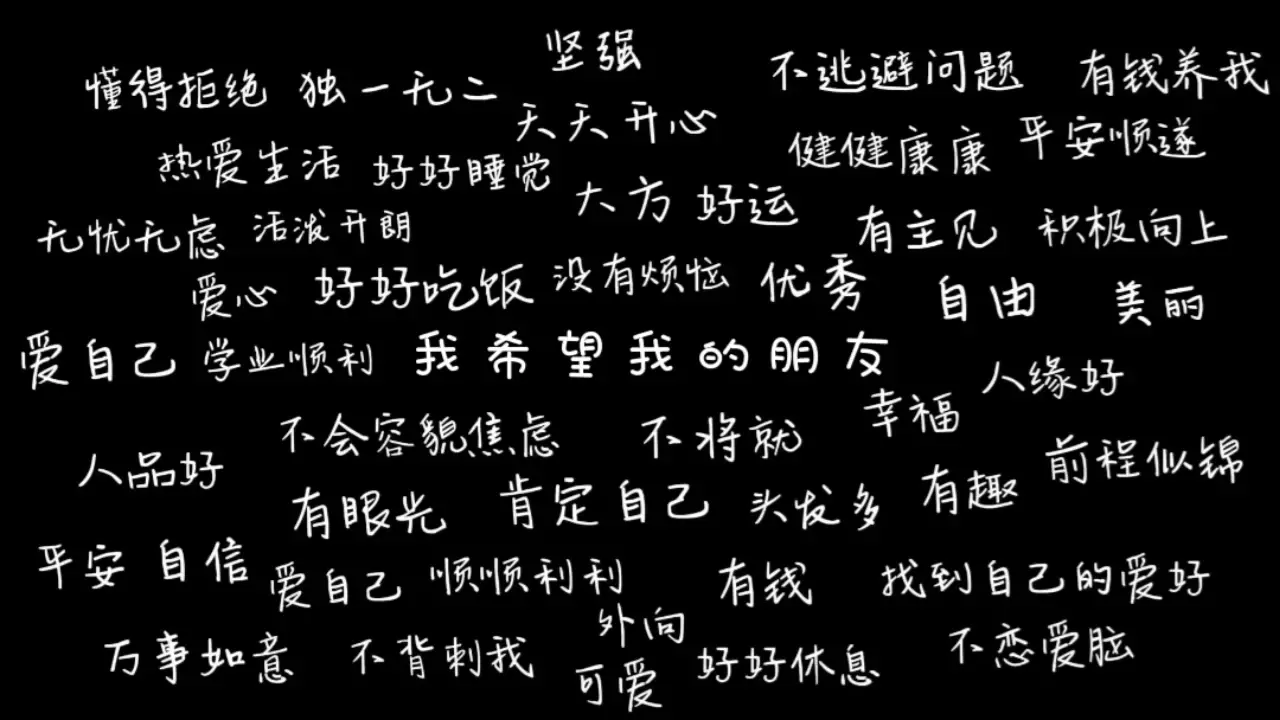 坚强
懂得拒绝 独一无二 不逃避问题 有钱养我
天天开心
热爱生活 好好睡觉 健健康康 平安顺遂
大方 好运
无忧无虑 活泼开朗 有主见 积极向上
爱心 好好吃饭 没有烦恼 优秀 自由 美丽
爱自己 学业顺利 我希望我的朋友
人缘好
不会容貌焦虑 不将就 幸福
人品好 前程似锦
有眼光 肯定自己 头发多 有趣
平安 自信 爱自己 顺顺利利 有钱 找到自己的爱好
外向
万事如意 不背刺我 好好休息 不恋爱脑
可爱